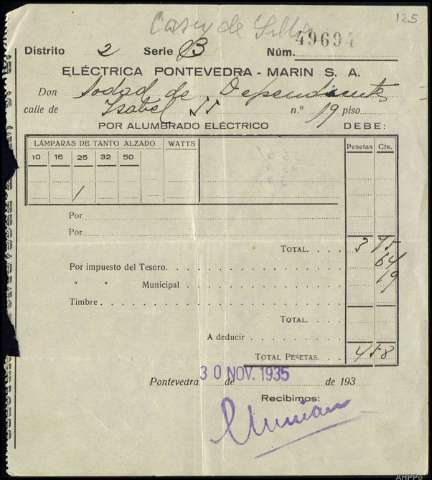 Casa de
125
Distrito 2 Serie B Núm. 49694
ELÉCTRICA PONTEVEDRA - MARIN S. A.
Don Sodad de Dependientes
calle de Isabel II n.º 19 piso
POR ALUMBRADO ELÉCTRICO DEBE:
LÁMPARAS DE TANTO ALZADO WATTS Pesetas Cts.
10 16 25 32 50
1
Por
Por
TOTAL. 3 75
Por impuesto del Tesoro. 64
" " Municipal 19
Timbre
TOTAL.
A deducir
TOTAL PESETAS. 4 58
Pontevedra 30 NOV. 1935 de de 193
Recibimos:
AHPPo